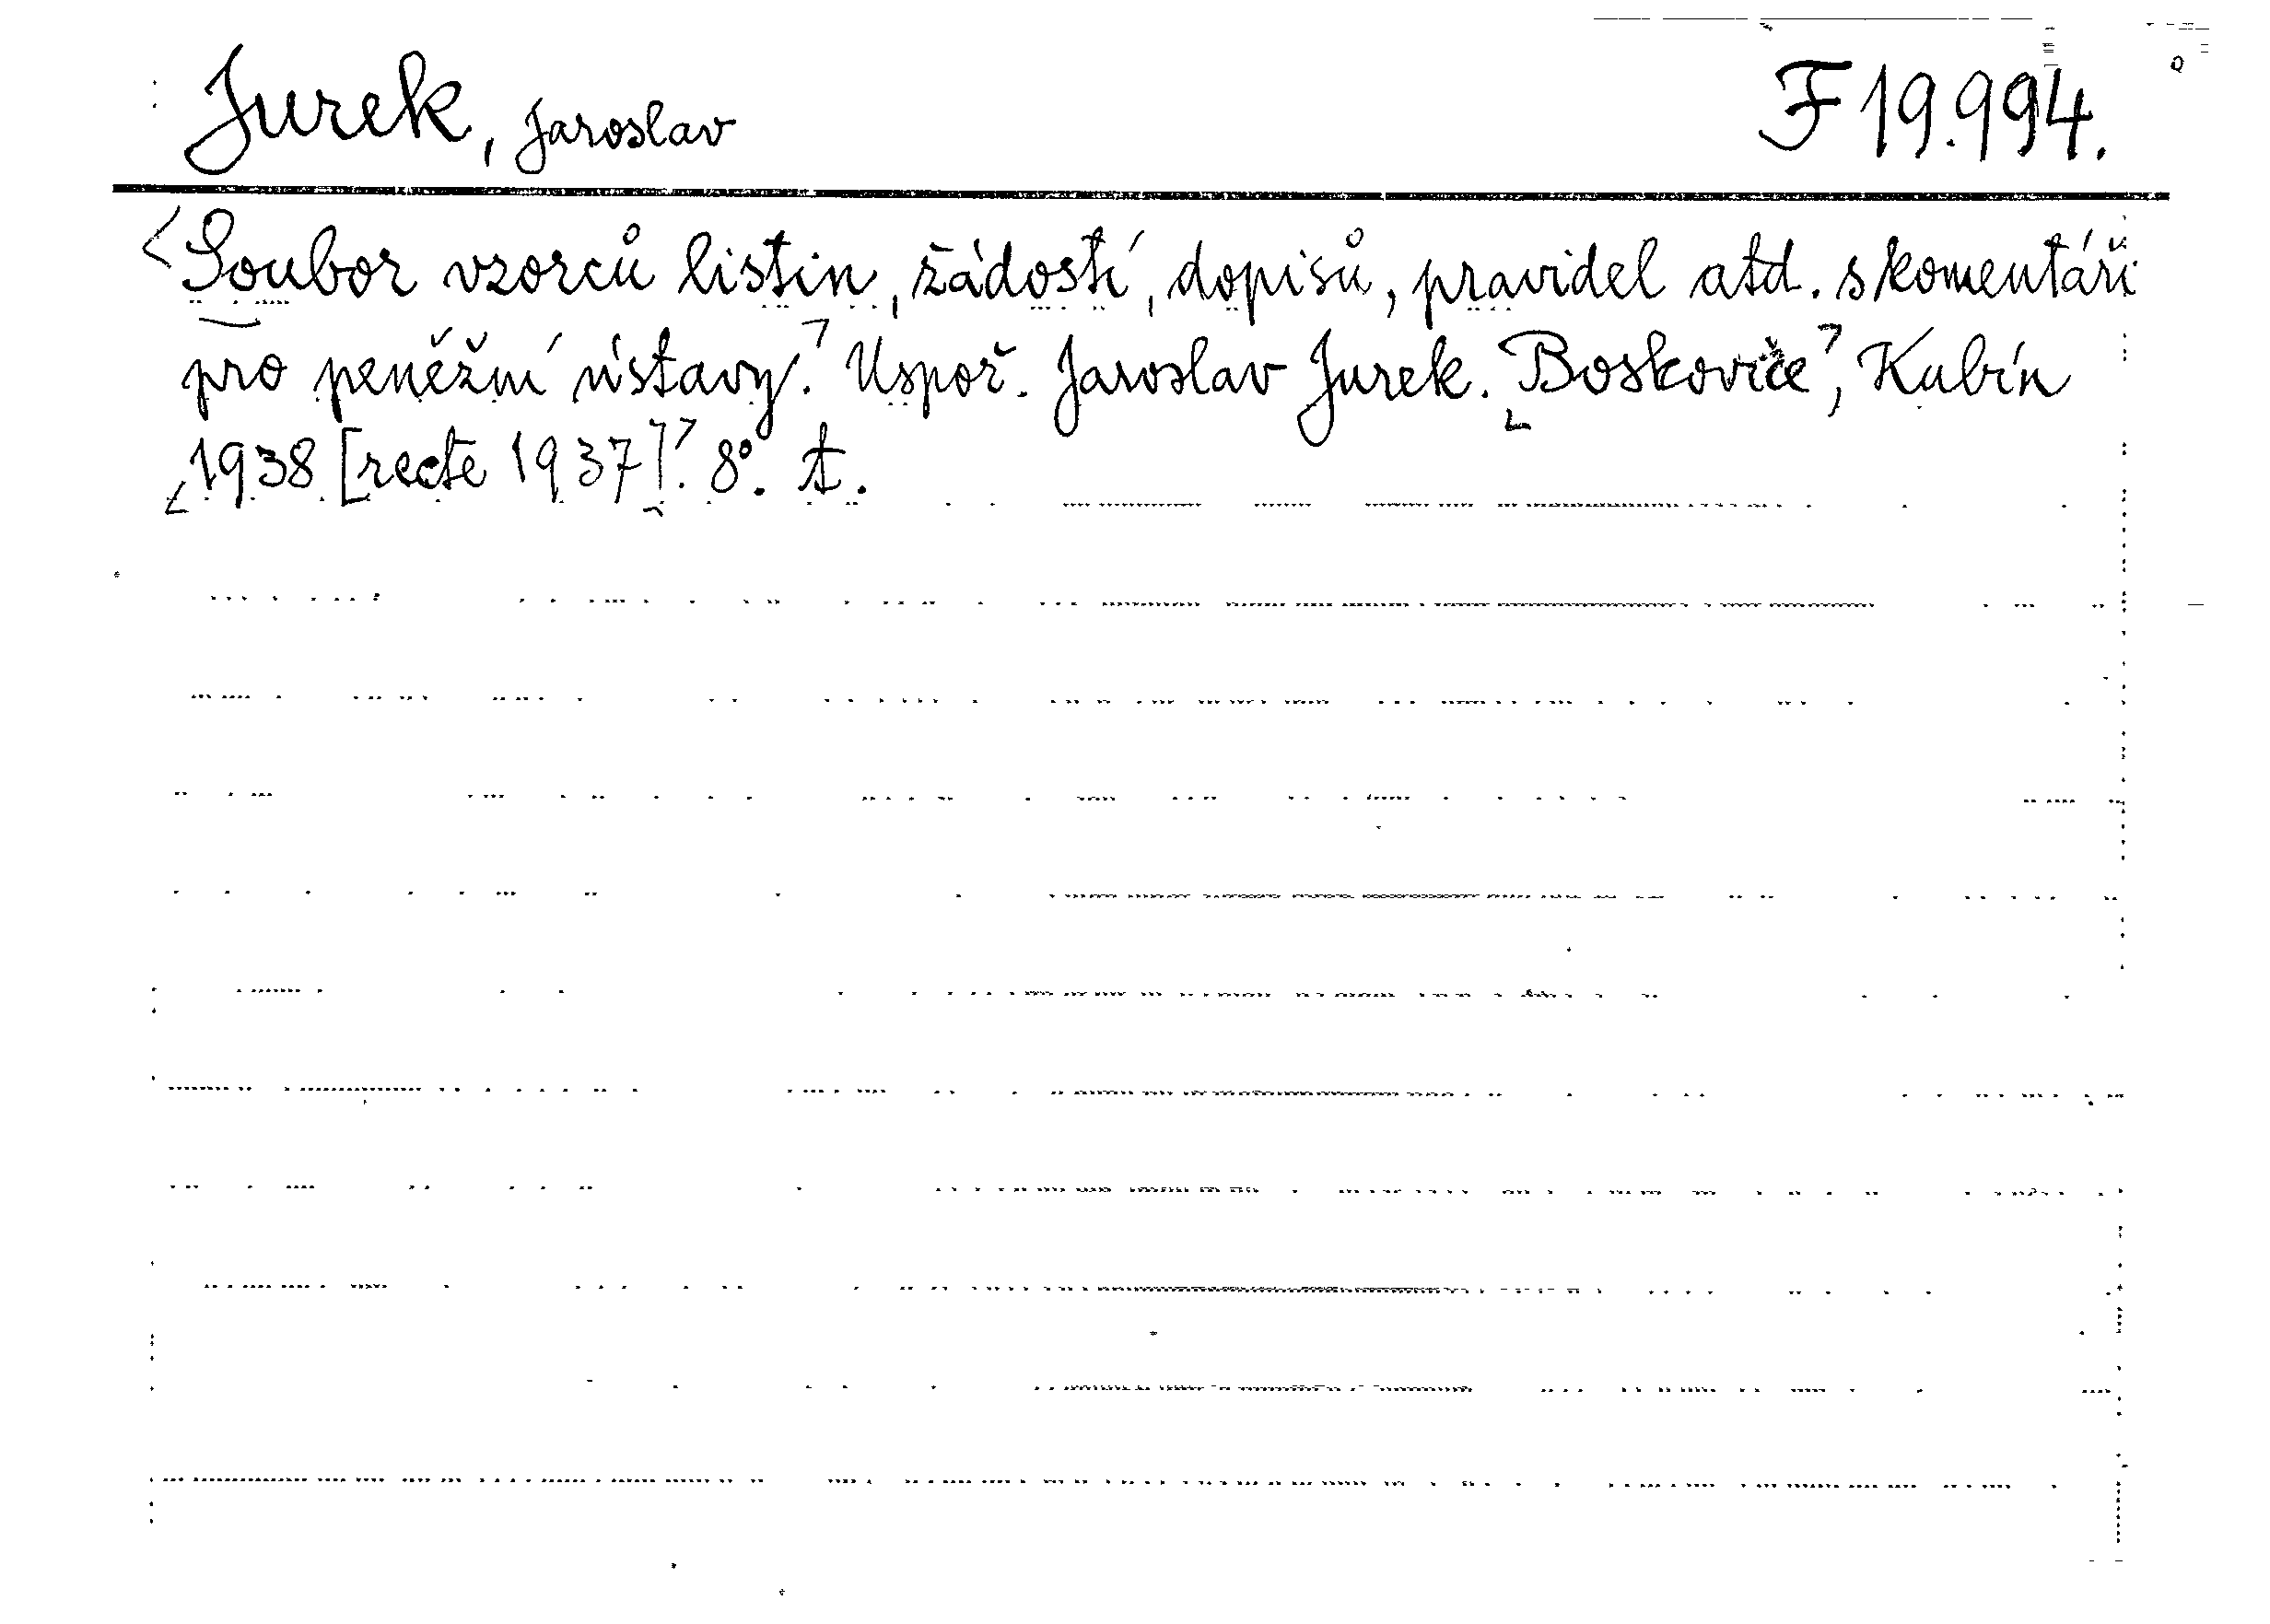 Jurek, Jaroslav F 19.994.
<Soubor vzorců listin, žádostí, dopisů, pravidel atd. s komentáři
pro peněžní ústavy.> Uspoř. Jaroslav Jurek. <Boskovice>, Kubín
<1938 [recte 1937]>. 8°. t.